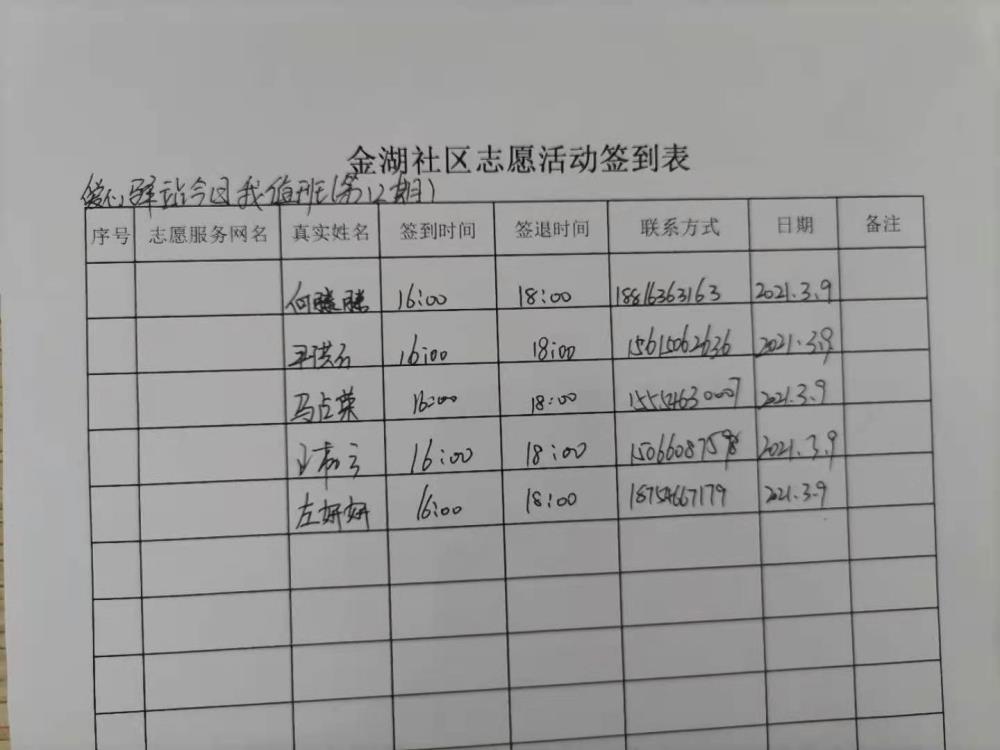 金湖社区志愿活动签到表
爱心驿站今日我值班(第12期)
序号 志愿服务网名 真实姓名 签到时间 签退时间 联系方式 日期 备注
何 16:00 18:00 18816363163 2021.3.9
王洪 16:00 18:00 15615062636 2021.3.9
马占荣 16:00 18:00 15554630007 2021.3.9
16:00 18:00 15066087598 2021.3.9
左妍妍 16:00 18:00 18754667179 2021.3.9